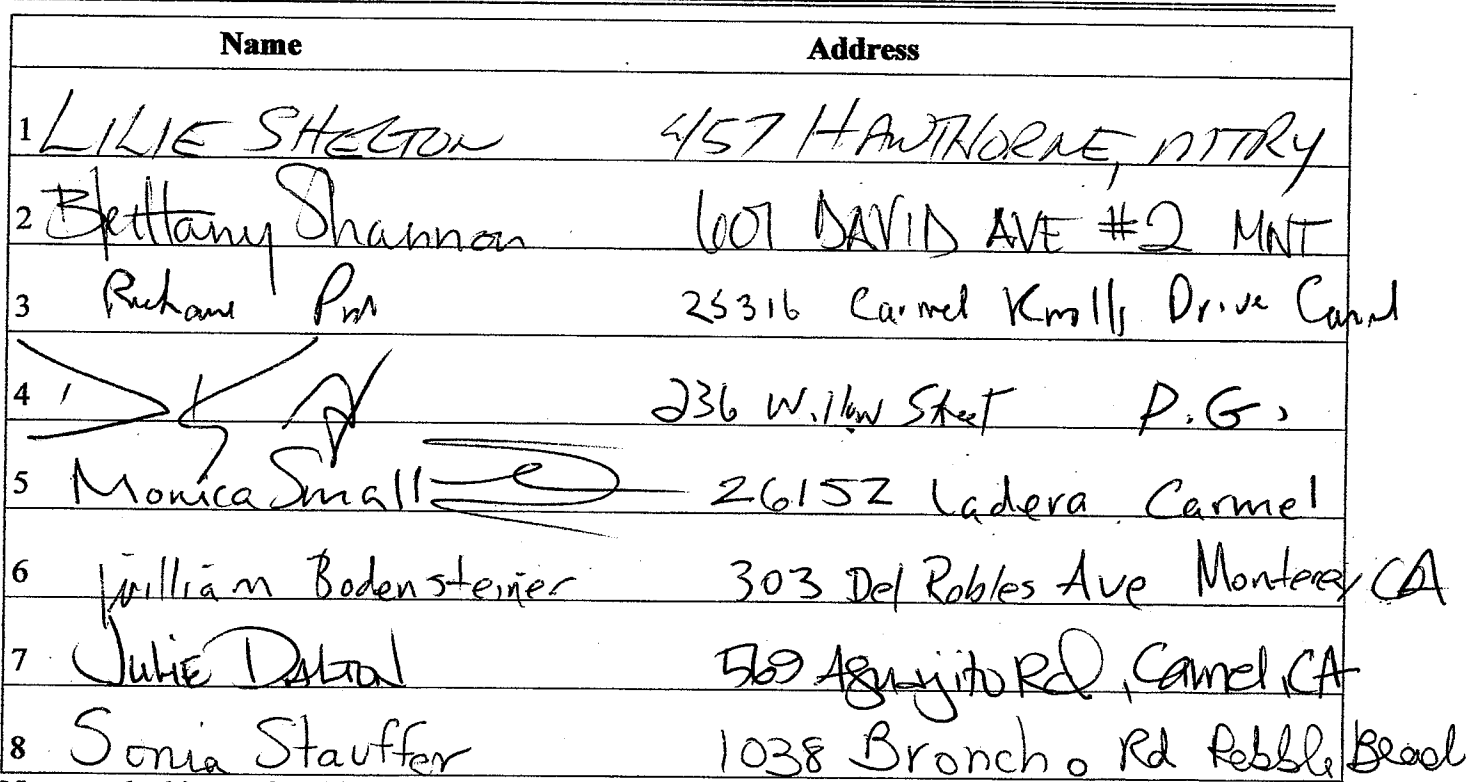 Name Address
1 LILIE SHELTON 457 HAWTHORNE, MTRY
2 Bettany Shannon 607 DAVID AVE #2 MNT
3 25316 Carmel Knolls Drive Carmel
4 236 Willow Street P.G.
5 Monica Small 26152 Ladera Carmel
6 William Bodensteiner 303 Del Robles Ave Monterey CA
7 JULIE DALTON 569 Aguajito Rd, Carmel, CA
8 Sonia Stauffer 1038 Broncho Rd Pebble Beach